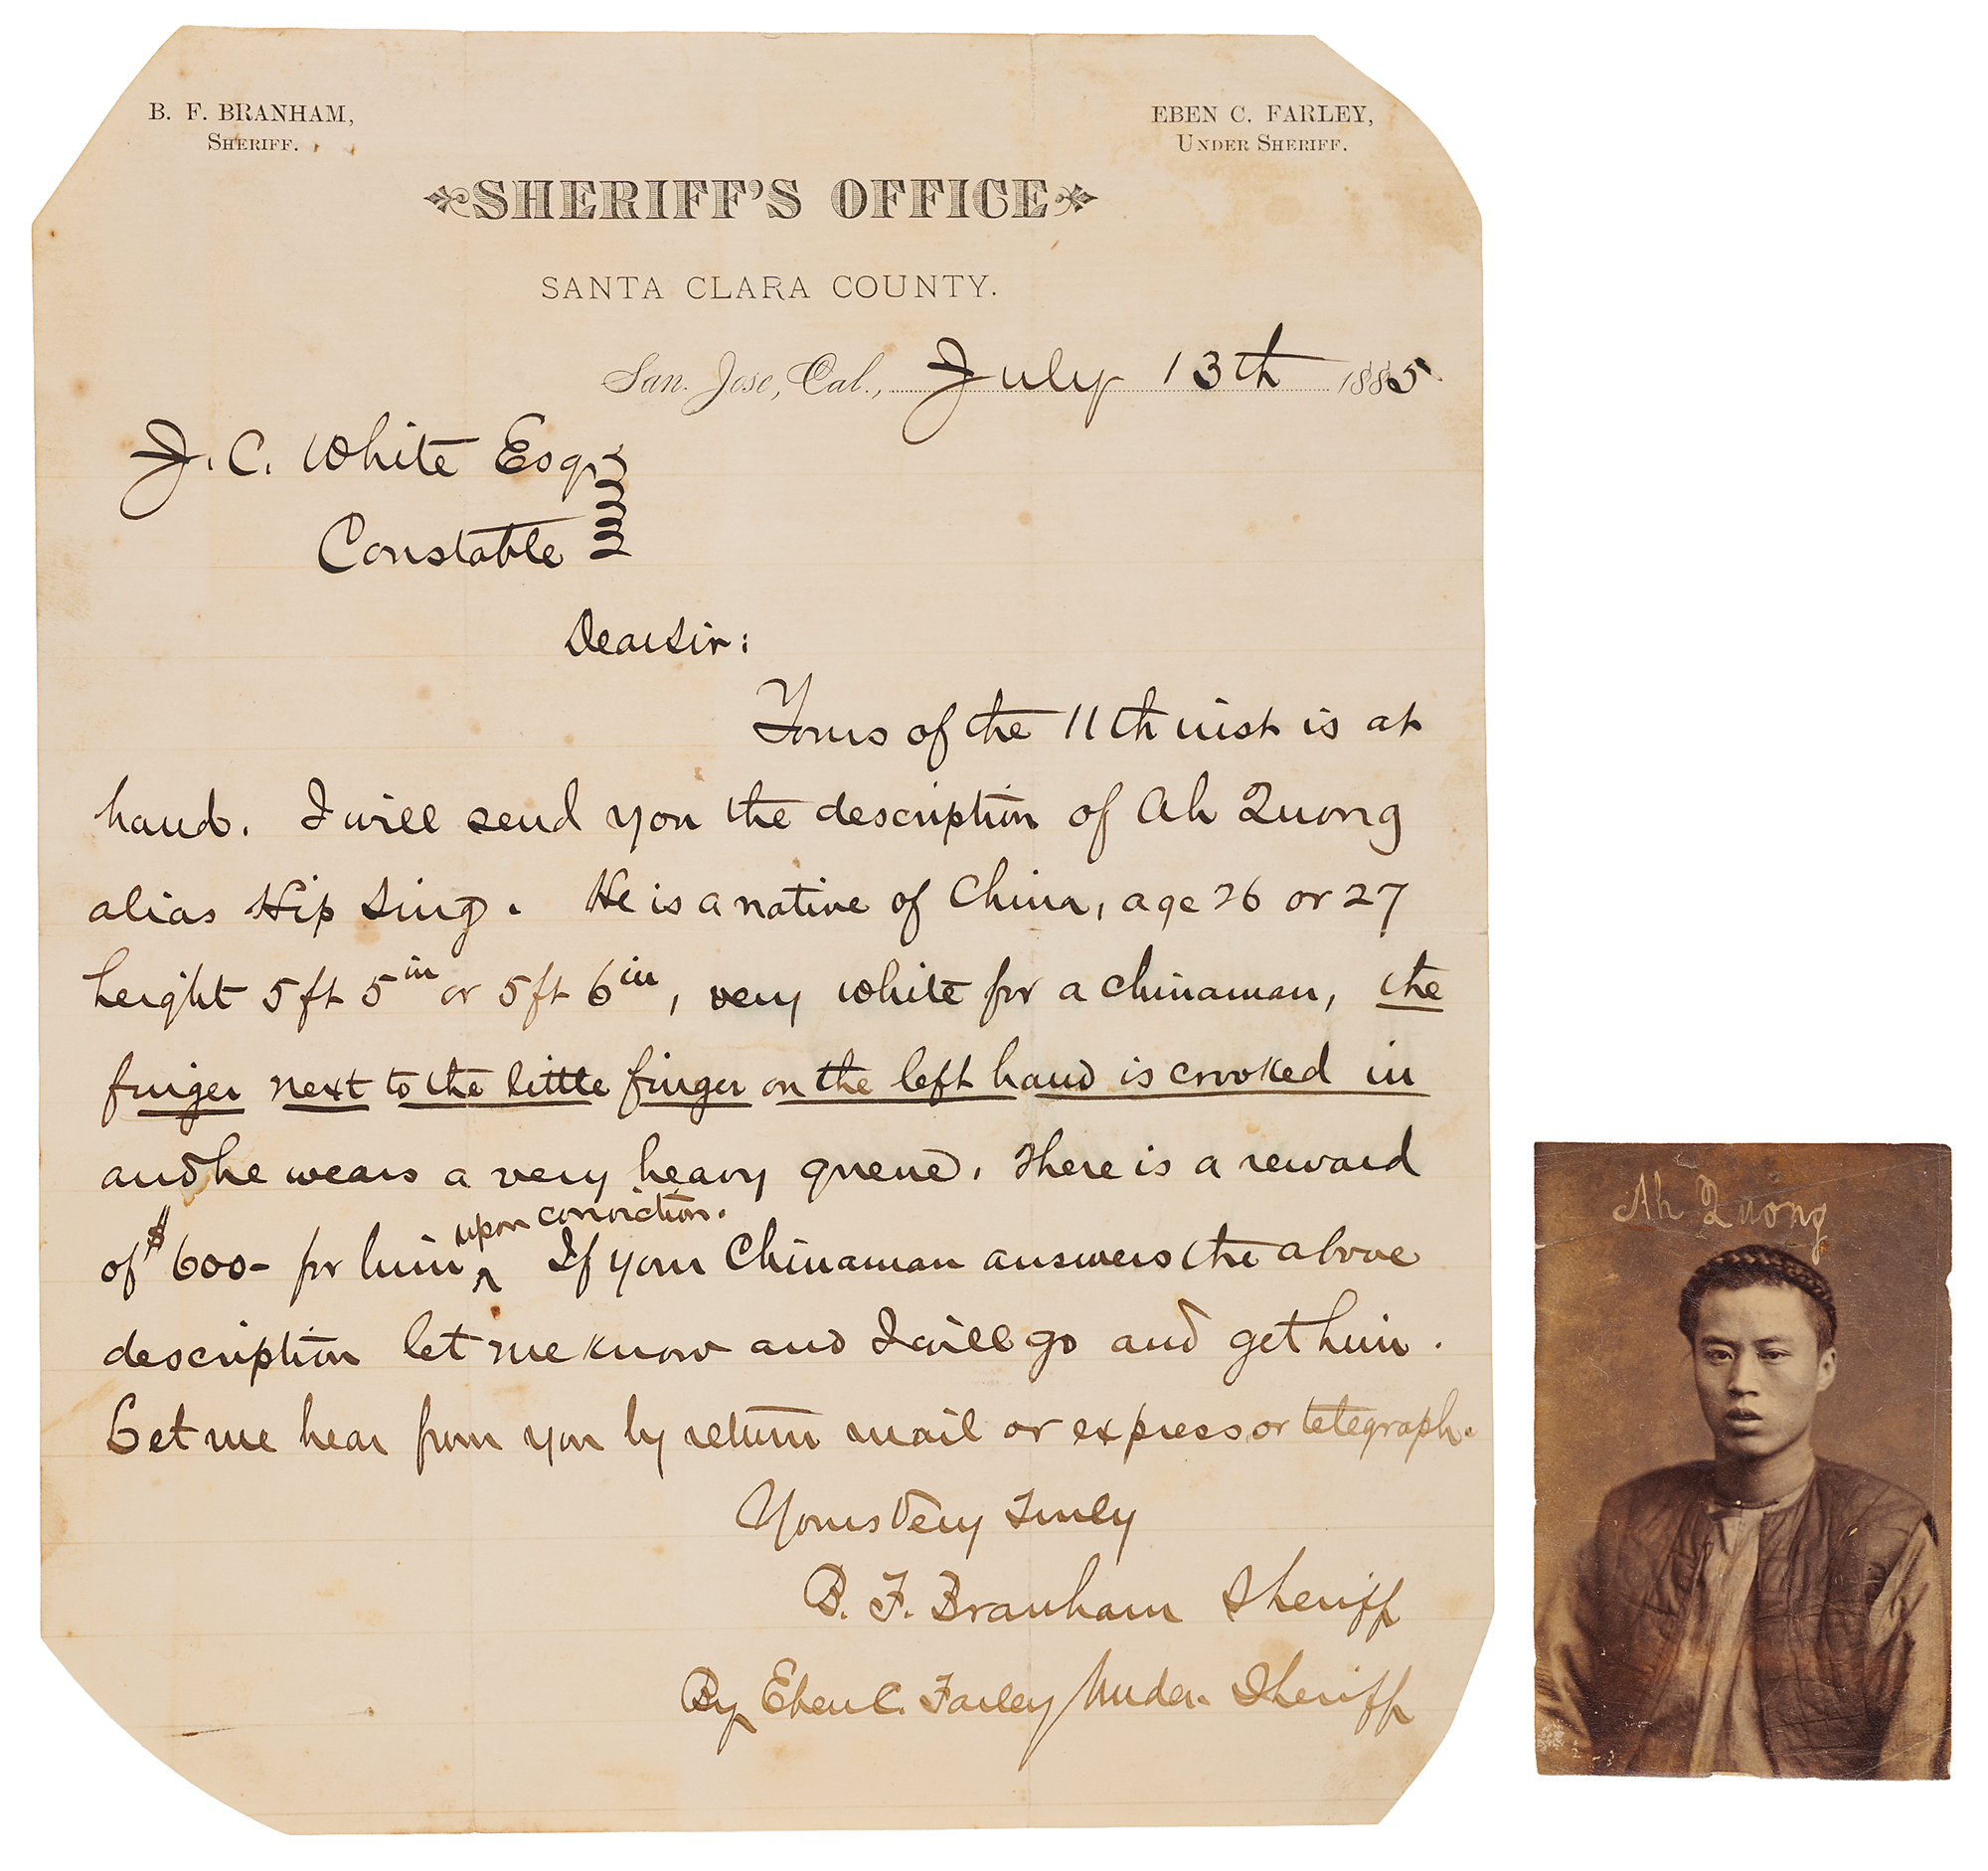 B. F. BRANHAM,
SHERIFF.
EBEN C. FARLEY,
UNDER SHERIFF.
SHERIFF'S OFFICE
SANTA CLARA COUNTY.
San Jose, Cal., July 13th 1885
J. C. White Esq.
Constable
Dear Sir:
Yours of the 11th inst is at
hand. I will send you the description of Ah Quong
alias Hip Sing. He is a native of China, age 26 or 27
height 5 ft 5 in or 5 ft 6 in, very white for a chinaman, the
finger next to the little finger on the left hand is crooked in
and he wears a very heavy queue. There is a reward
of $600- for him upon conviction. If your Chinaman answers the above
description let me know and I will go and get him.
Let me hear from you by return mail or express or telegraph.
Yours Very Truly
B. F. Branham Sheriff
By Eben C. Farley Under Sheriff
Ah Quong